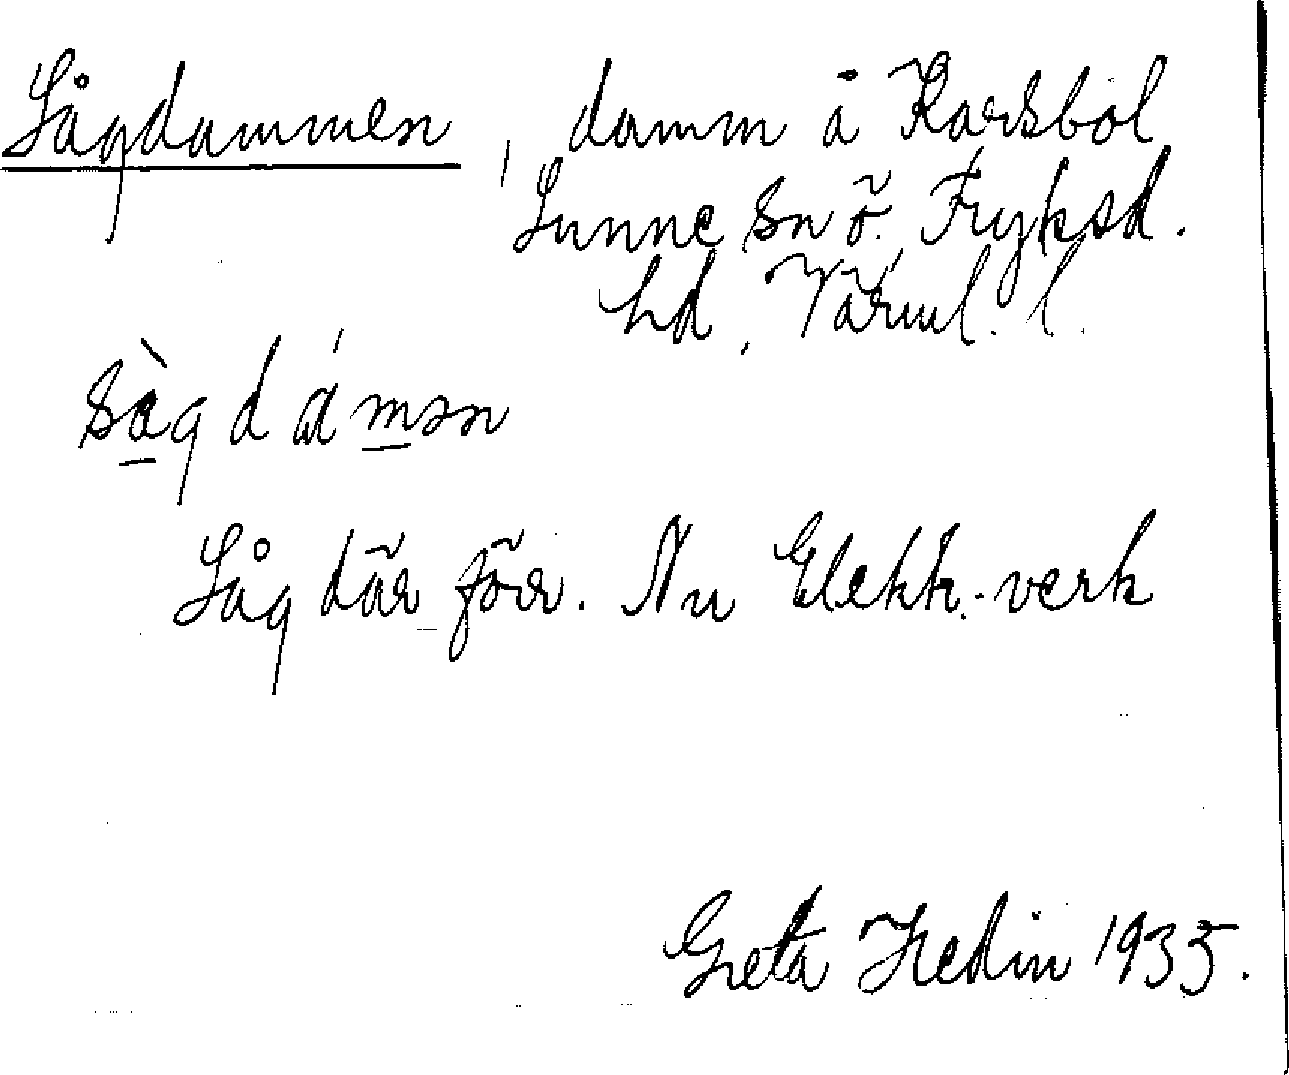 Sågdammen, damm å Karsbol
Sunne sn ö. Fryksd.
hd, Värml. l.
sàgdámən
Såg där förr. Nu Elektr.-verk
Greta Hedin 1935.